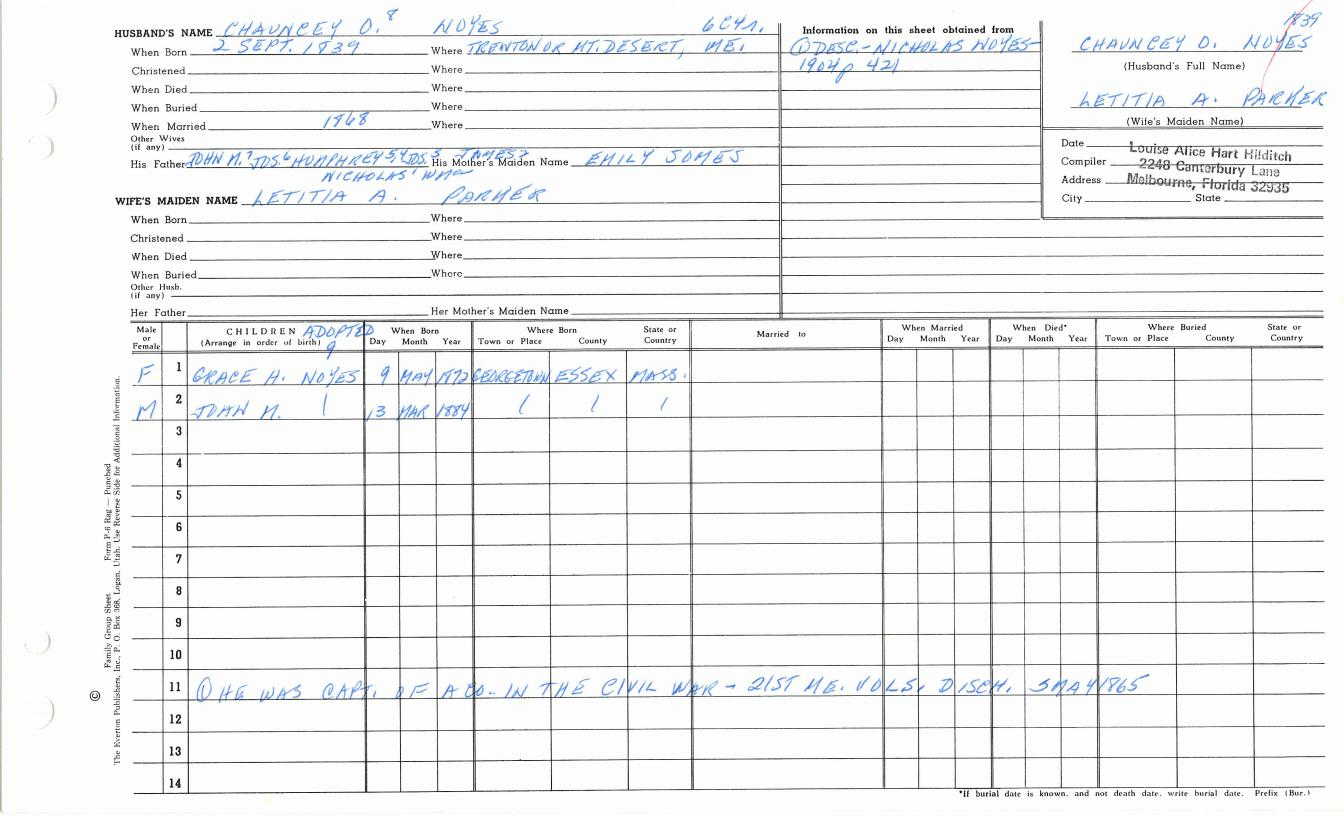 1839
HUSBAND'S NAME CHAUNCEY D.⁸ NOYES 6CY1.
When Born 2 SEPT. 1839 Where TRENTON OR MT. DESERT, ME.
Christened Where
When Died Where
When Buried Where
When Married 1868 Where
Other Wives
(if any)
His Father JOHN M.⁷ JOS⁶ HUMPHREY⁵,⁴ JOS.³ JAMES² His Mother's Maiden Name EMILY SOMES
NICHOLAS¹ WM
WIFE'S MAIDEN NAME LETITIA A. PARKER
When Born Where
Christened Where
When Died Where
When Buried Where
Other Husb.
(if any)
Her Father Her Mother's Maiden Name
Information on this sheet obtained from
① DESC - NICHOLAS NOYES -
1904 p 421
CHAUNCEY D. NOYES
(Husband's Full Name)
LETITIA A. PARKER
(Wife's Maiden Name)
Date
Compiler Louise Alice Hart Hilditch
Address 2248 Canterbury Lane
Melbourne, Florida 32935
City State
Male or Female CHILDREN ADOPTED (Arrange in order of birth) 9 When Born Day Month Year Where Born Town or Place County State or Country Married to When Married Day Month Year When Died* Day Month Year Where Buried Town or Place County State or Country
F 1 GRACE H. NOYES 9 MAY 1872 GEORGETOWN ESSEX MASS.
M 2 JOHN M. | 13 MAR 1884 | | |
3
4
5
6
7
8
9
10
11 ① HE WAS CAPT. OF A CO. IN THE CIVIL WAR - 21ST ME. VOLS. DISCH. 3 MAY 1865
12
13
14
*If burial date is known, and not death date, write burial date. Prefix (Bur.)
© Family Group Sheet Form P-6 Rag — Punched
The Everton Publishers, Inc., P. O. Box 368, Logan, Utah. Use Reverse Side for Additional Information.